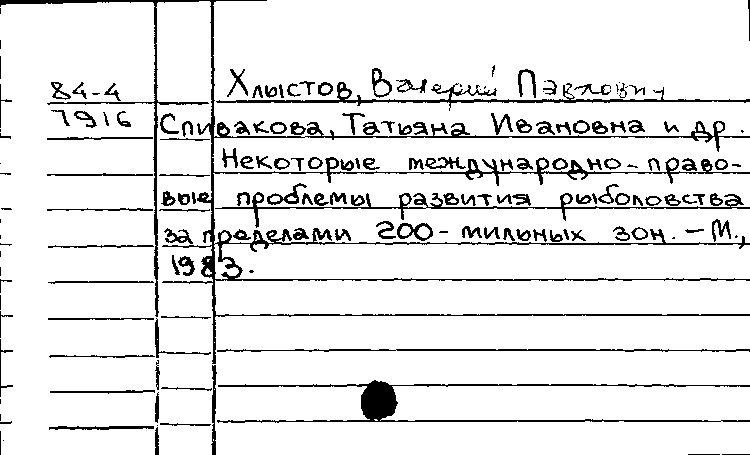 84-4
7916
Хлыстов, Валерий Павлович
Спивакова, Татьяна Ивановна и др.
Некоторые международно-право-
вые проблемы развития рыболовства
за пределами 200-мильных зон. – М.,
1983.